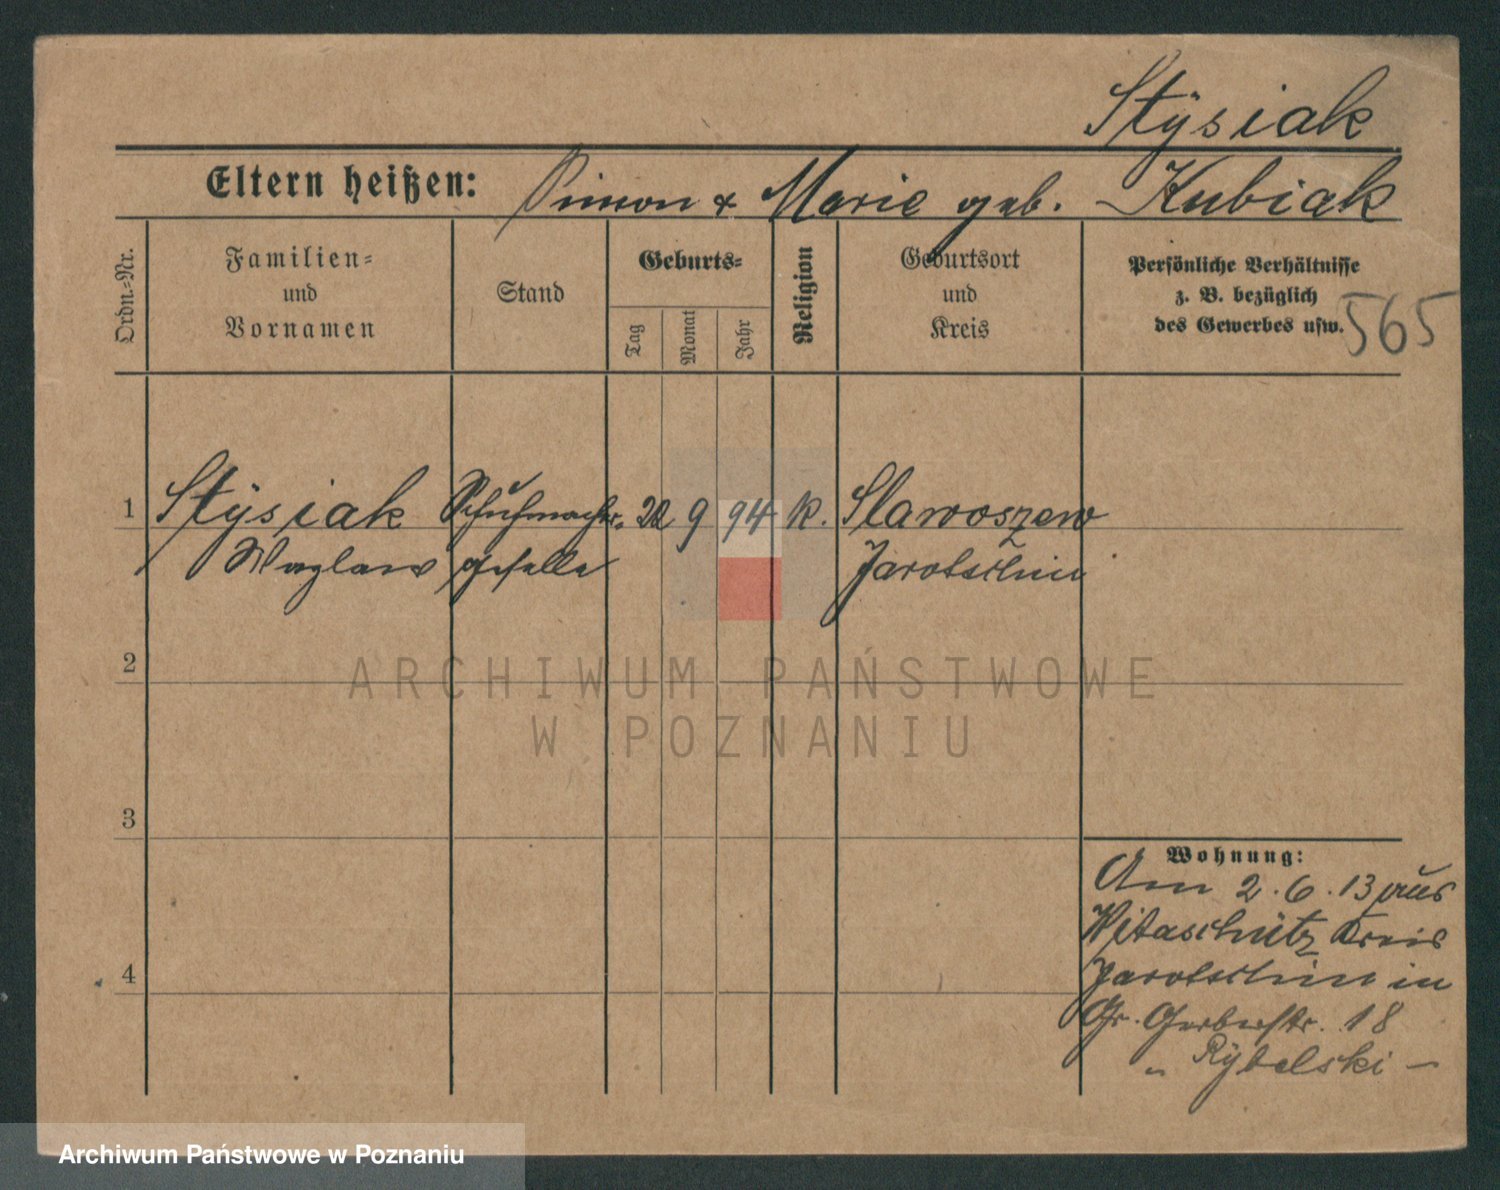 Stÿsiak
Eltern heißen: Simon & Marie geb. Kubiak
Ordn.-Nr.
Familien-
und
Vornamen
Stand
Geburts-
Tag
Monat
Jahr
Religion
Geburtsort
und
Kreis
Persönliche Verhältnisse
z. B. bezüglich
des Gewerbes usw.
565
1 Stÿsiak Schuhmacher- 22 9 94 k. Slawoszew
Wazlaw geselle Jarotschin
2
3
4
Wohnung:
Am 2.6.13 aus
Witaschütz Kreis
Jarotschin in
Gr. Gerberstr. 18
„ Rÿbelski –
ARCHIWUM PAŃSTWOWE
W POZNANIU
Archiwum Państwowe w Poznaniu